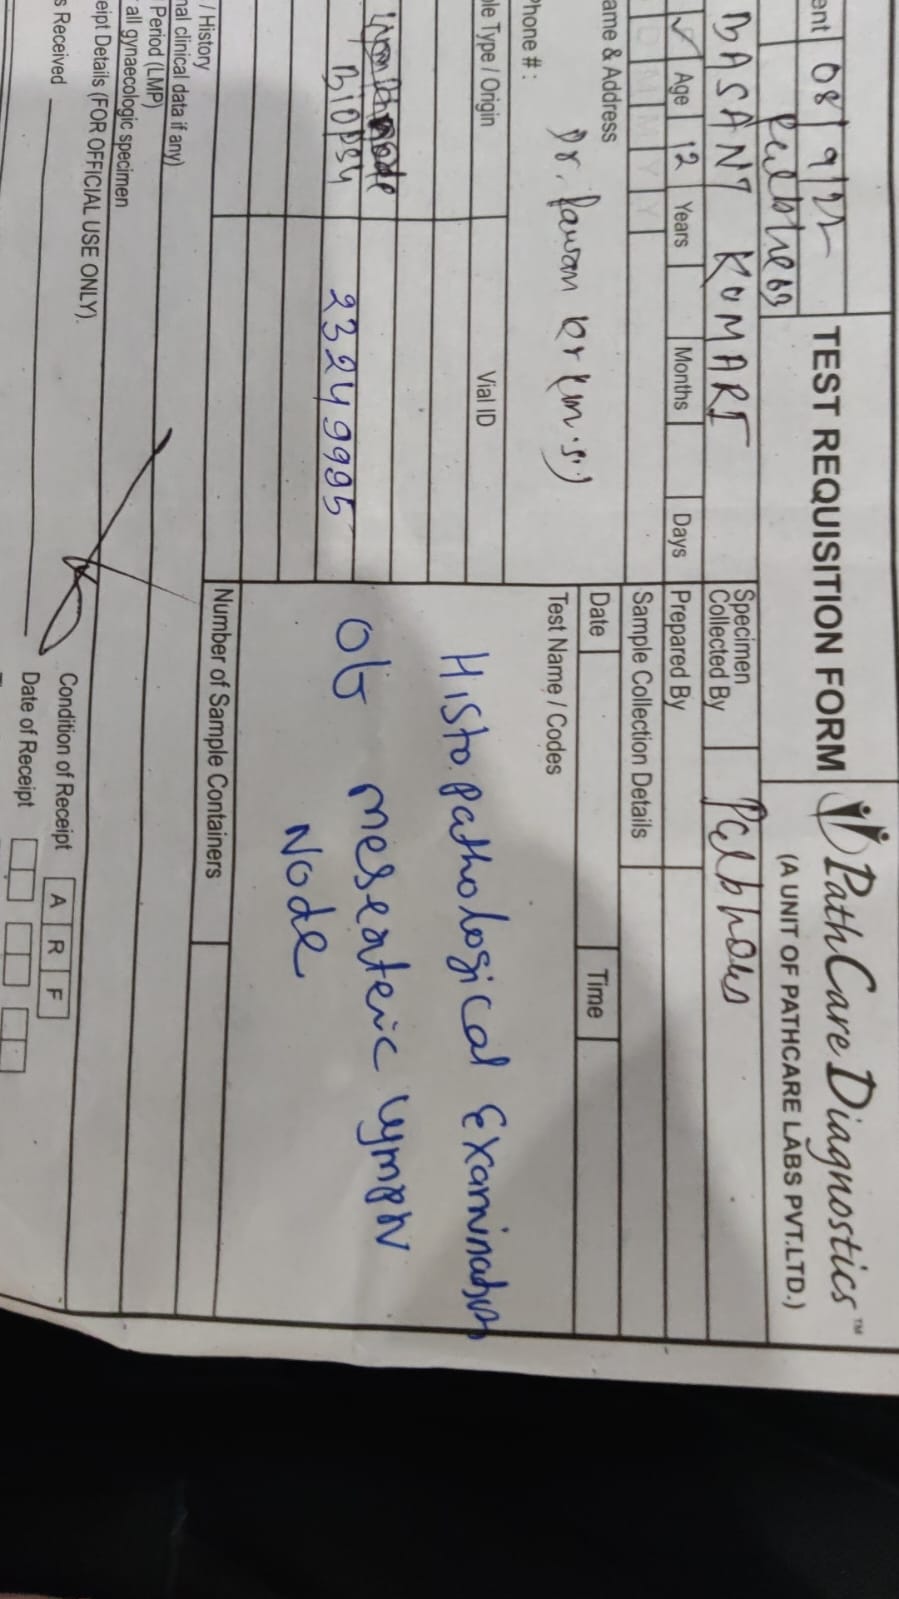 ent 08/9/22
TEST REQUISITION FORM
PathCare Diagnostics™
(A UNIT OF PATHCARE LABS PVT.LTD.)
BASANT KUMARI
Specimen Collected By
✓ Age 12 Years Months Days
Prepared By
Sample Collection Details
ame & Address
Date Time
Dr. Pawan Kr (m.s)
Phone # :
Test Name / Codes
le Type / Origin Vial ID
Histopathological Examination
Biopsy 23249995
of mesenteric lymph
Node
/ History
Number of Sample Containers
nal clinical data if any)
Period (LMP)
all gynaecologic specimen
eipt Details (FOR OFFICIAL USE ONLY).
s Received
Condition of Receipt A R F
Date of Receipt